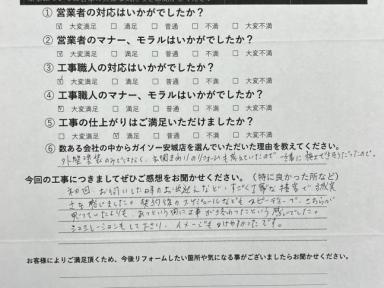 ① 営業者の対応はいかがでしたか?
☑ 大変満足 □ 満足 □ 普通 □ 不満 □ 大変不満
② 営業者のマナー、モラルはいかがでしたか?
☑ 大変満足 □ 満足 □ 普通 □ 不満 □ 大変不満
③ 工事職人の対応はいかがでしたか?
☑ 大変満足 □ 満足 □ 普通 □ 不満 □ 大変不満
④ 工事職人のマナー、モラルはいかがでしたか?
☑ 大変満足 □ 満足 □ 普通 □ 不満 □ 大変不満
⑤ 工事の仕上がりはご満足いただけましたか?
□ 大変満足 □ 満足 □ 普通 □ 不満 □ 大変不満
⑥ 数ある会社の中からガイソー安城店を選んでいただいた理由を教えてください。
外壁塗装のみではなく、玄関まわりのリフォームも
今回の工事につきましてぜひご感想をお聞かせください。(特に良かった所など)
初回 お伺いした時の など、すごく丁寧な接客で誠実
さを感じました。契約後のスケジュールなども スピーディーで、こちらが
思っていたよりも あっという間に工事が終わったという感じでした。
シミュレーションもして 、イメージも かったです。
お客様によりご満足頂くため、今後リフォームしたい箇所や気になる事がございましたらお聞かせください。